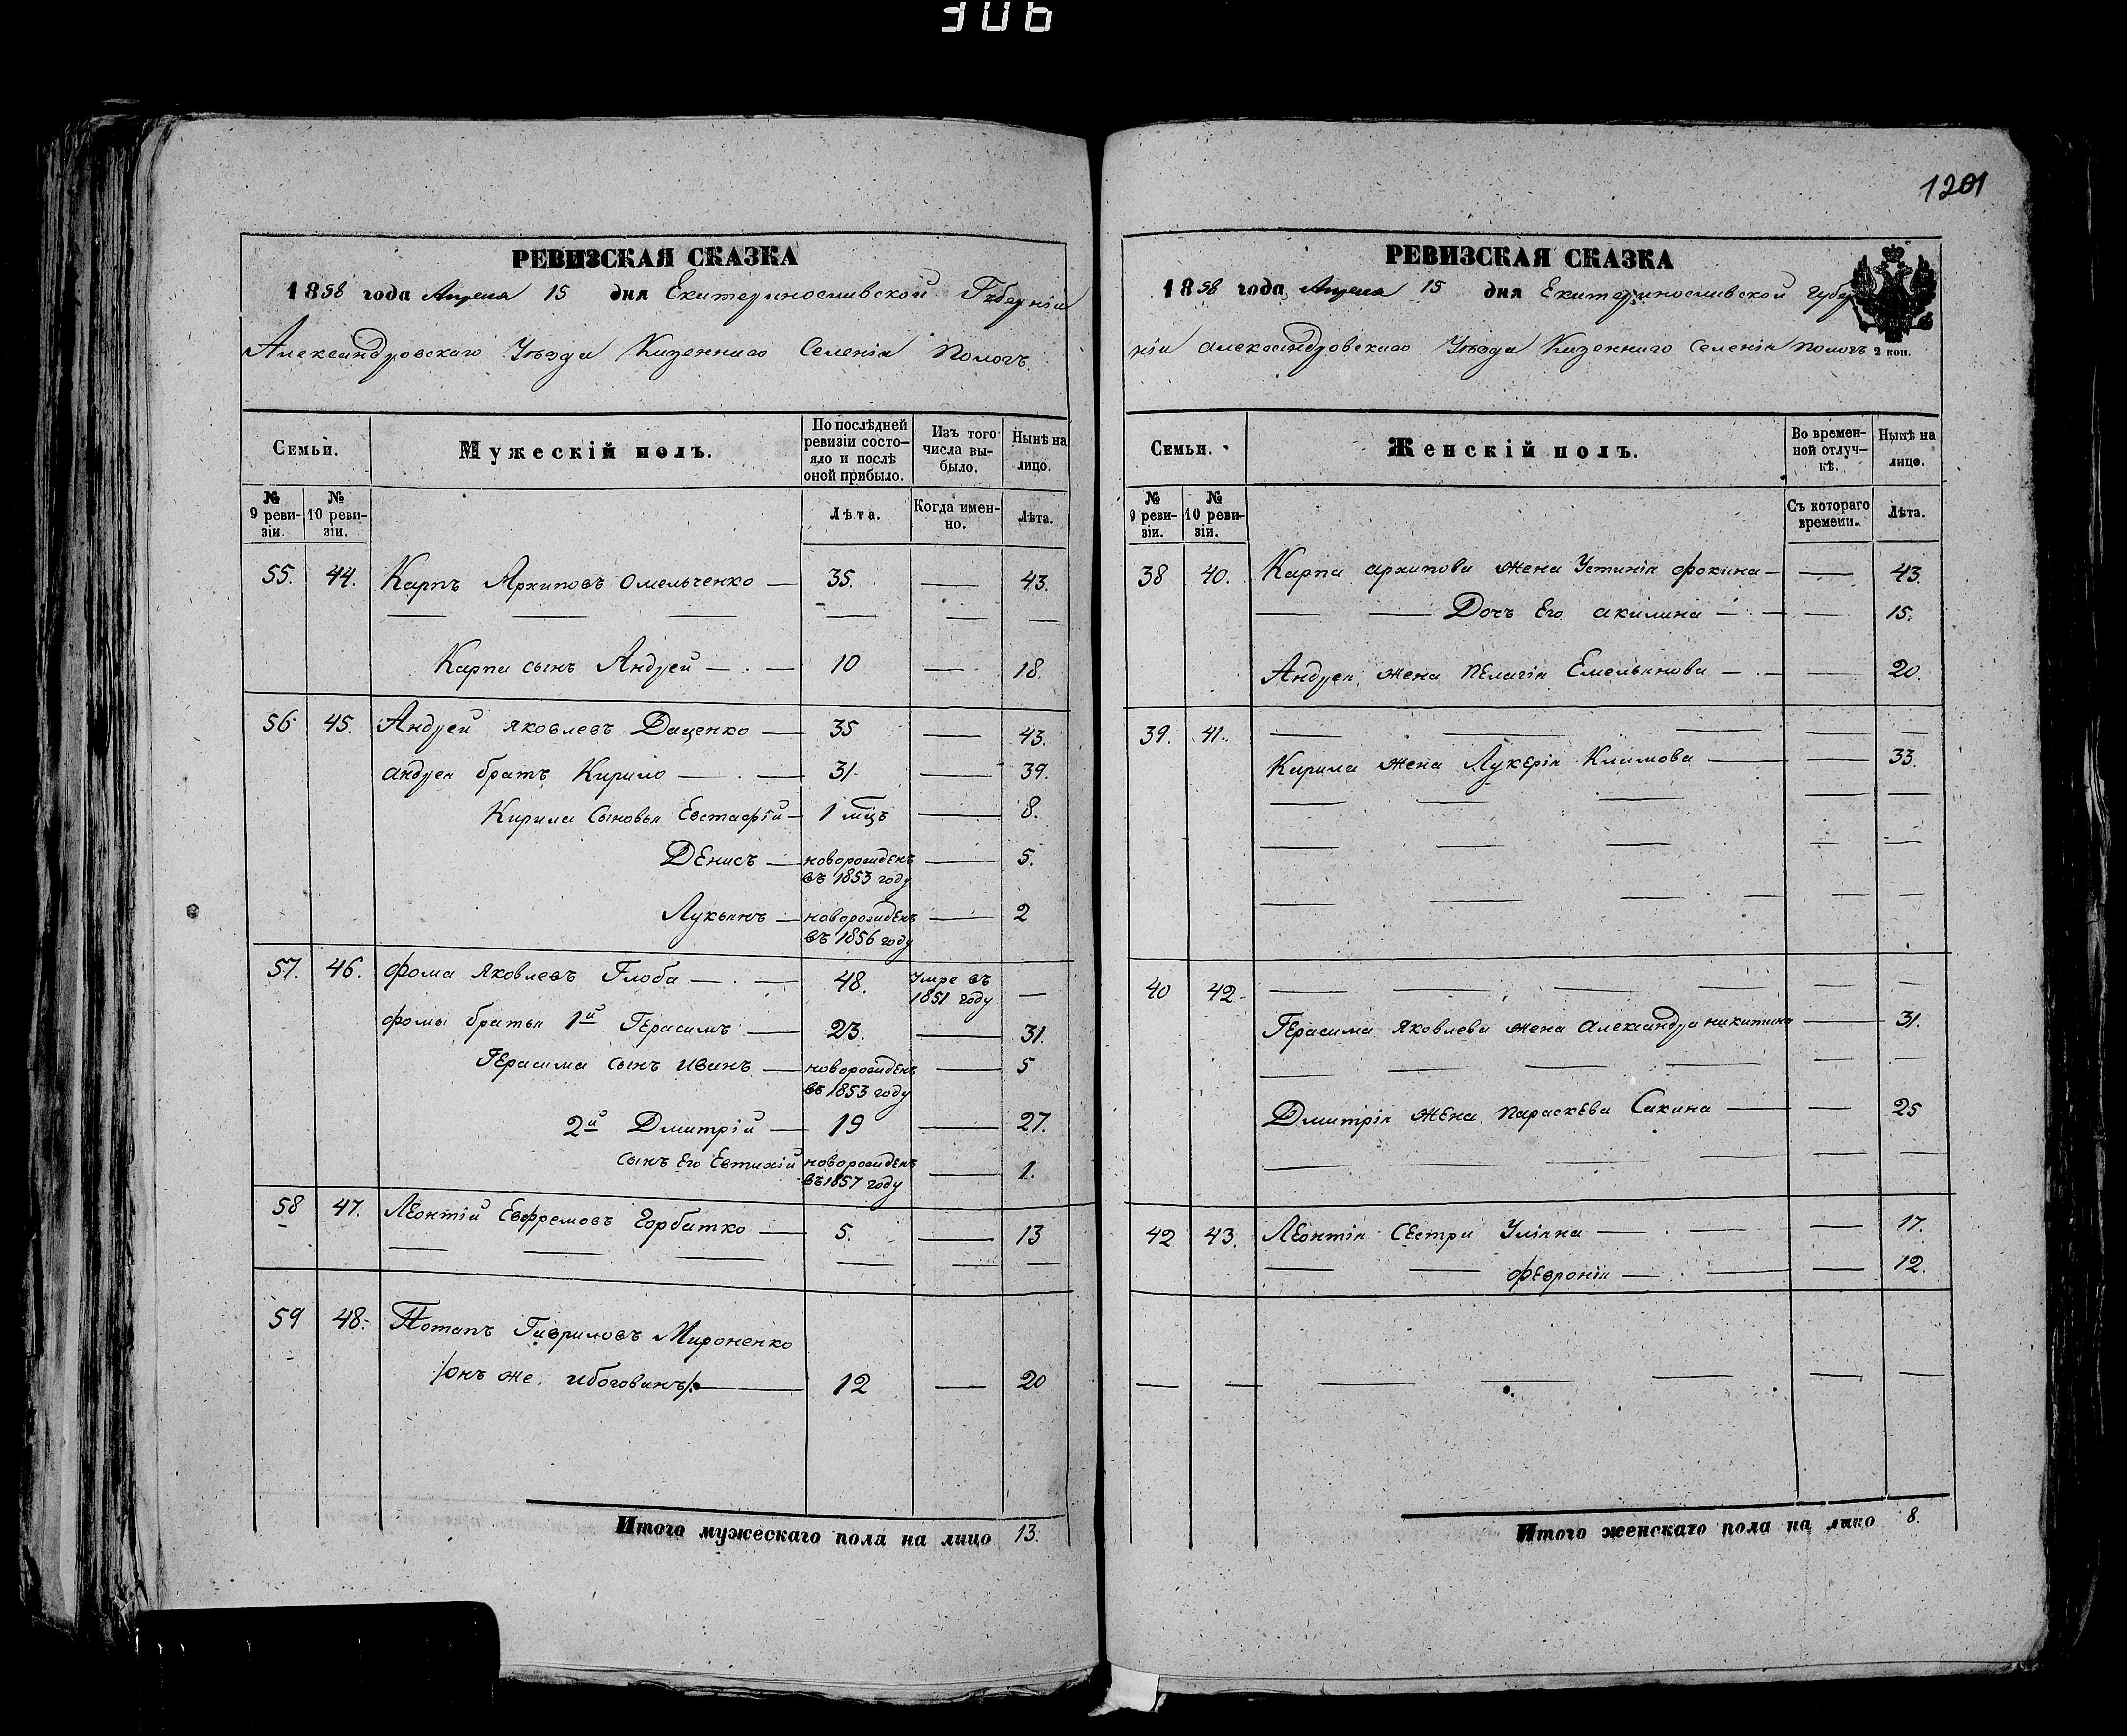 306
1201
РЕВИЗСКАЯ СКАЗКА
1858 года Апреля 15 дня Екатеринославской Губерніи
Александровскаго Уѣзда Казеннаго Селенія Пологъ
Семьи.
Мужескій полъ.
По послѣдней ревизіи состо-
яло и послѣ
оной прибыло.
Изъ того
числа вы-
было.
Нынѣ на
лицо.
№ 9 реви-
зіи.
№ 10 реви-
зіи.
Лѣта.
Когда имен-
но.
Лѣта.
55. 44. Карпъ Архиповъ Омельченко — 35. — 43.
Карпа сынъ Андрей — 10 — 18.
56 45. Андрей Яковлевъ Даценко — 35 — 43.
Андрея братъ Кирило — 31. — 39.
Кирила Сыновья Евстафій — 1 мцъ — 8.
Денисъ — новорожденъ въ 1853 году — 5.
Лукьянъ — новорожденъ въ 1856 году — 2
57. 46. Фома Яковлевъ Глоба — 48. Умре въ 1851 году —
Фомы братья 1й Герасимъ — 23. — 31.
Герасима сынъ Иванъ — новорожденъ въ 1853 году — 5
2й Дмитрій — 19 — 27.
сынъ Его Евтихій новорожденъ въ 1857 году — 1.
58 47. Леонтій Евфремовъ Горбатко — 5. — 13
59 48. Потапъ Гавриловъ Мироненко
/онъ же / — 12 — 20
Итого мужескаго пола на лицо 13.
РЕВИЗСКАЯ СКАЗКА
1858 года Апреля 15 дня Екатеринославской Губер
ніи Александровскаго Уѣзда Казеннаго Селенія Пологъ 2 коп.
Семьи.
Женскій полъ.
Во времен-
ной отлуч-
кѣ.
Нынѣ на
лицо.
№ 9 реви-
зіи.
№ 10 реви-
зіи.
Съ котораго
времени.
Лѣта.
38 40. Карпа Архипова жена Устинія Фокина — — 43.
Дочь Его Акилина — — 15.
Андрея жена Пелагія Емельянова — — 20.
39. 41. — — —
Кирила жена Лукерія Климова — — 33.
40 42 — — —
Герасима Яковлева жена Александра Никитина — 31.
Дмитрія жена Параскева Сакина — — 25
42 43. Леонтія Сестры Уліяна — — 17.
Февронія — — 12.
Итого женскаго пола на лицо 8.